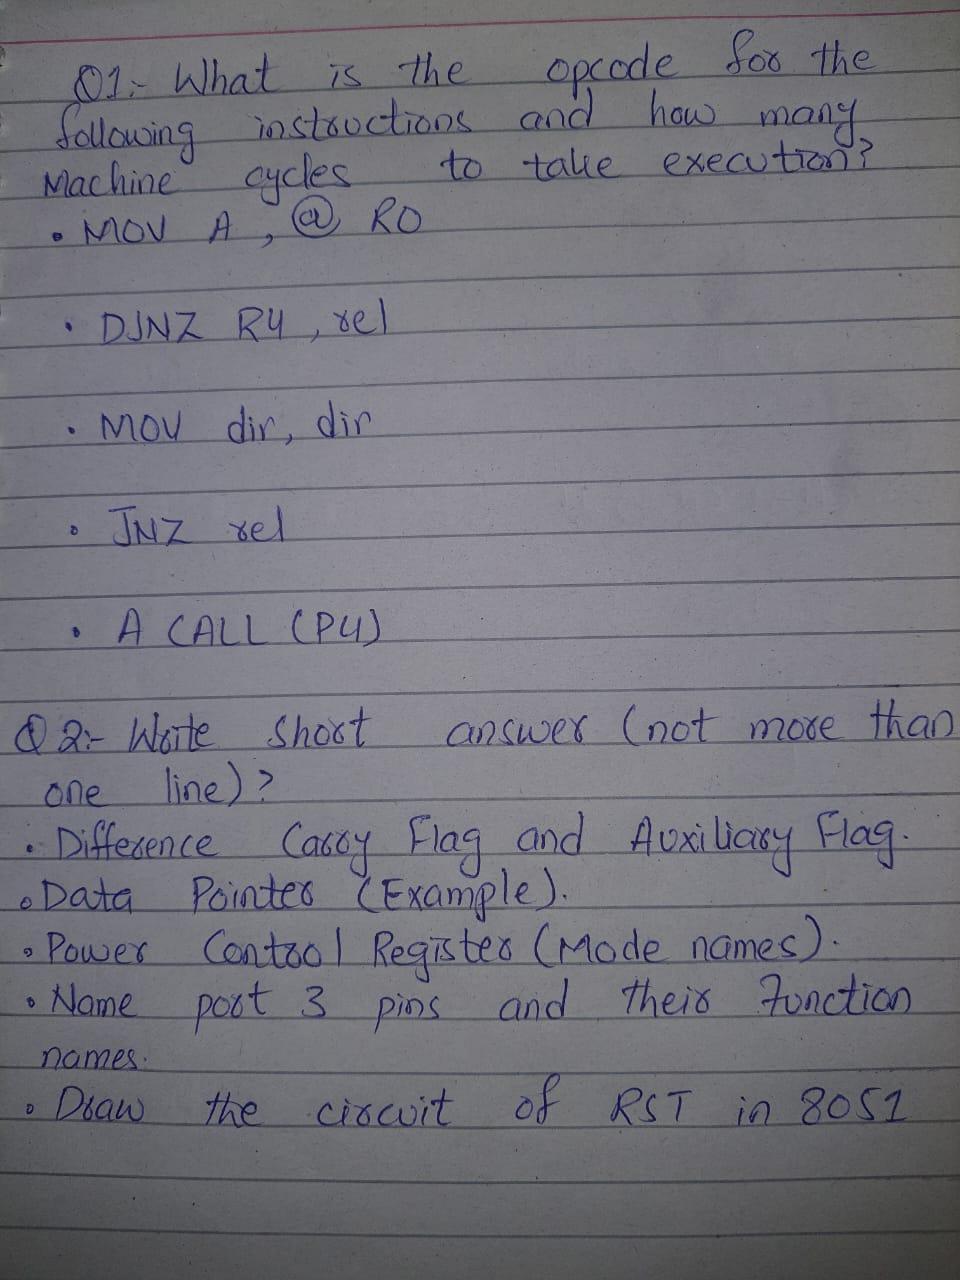 Q1:- What is the opcode for the
following instructions and how many
Machine cycles to take execution?
• MOV A, @ R0
• DJNZ R4, rel
• MOV dir, dir
• JNZ rel
• A CALL (P4)
Q2:- Write short answer (not more than
one line)?
• Difference Carry Flag and Auxiliary Flag.
• Data Pointer (Example).
• Power Control Register (Mode names).
• Name port 3 pins and their Function
names.
• Draw the circuit of RST in 8051